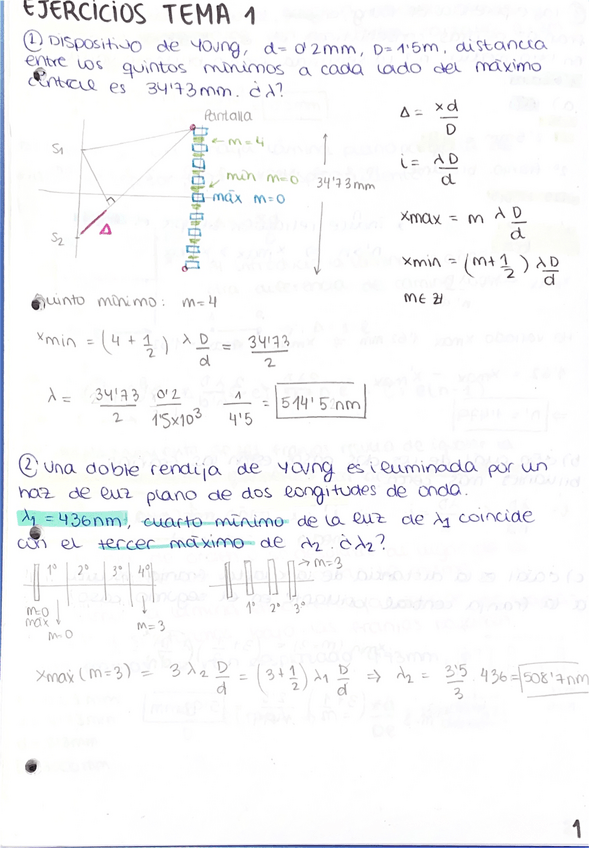 EJERCICIOS TEMA 1
① Dispositivo de Young, d= 0'2mm, D=1'5m, distancia
entre los quintos mínimos a cada lado del máximo
central es 34'73mm. ¿λ?
Pantalla
S1
S2
Δ
← m=4
mín m=0
máx m=0
34'73mm
Δ = xd/D
i = λD/d
xmax = m λ D/d
xmin = (m+1/2) λD/d
m∈ℤ
Quinto mínimo: m=4
xmin = (4 + 1/2) λ D/d = 34'73/2
λ = 34'73/2 0'2/1'5x10³ 1/4'5 = 514'5nm
② Una doble rendija de Young es iluminada por un
haz de luz plano de dos longitudes de onda.
λ1 = 436nm, cuarto mínimo de la luz de λ1 coincide
con el tercer máximo de λ2. ¿λ2?
1º 2º 3º 4º
m=0
máx
m=0
m=3
→ m=3
1º 2º 3º
xmax (m=3) = 3 λ2 D/d = (3+1/2) λ1 D/d ⇒ λ2 = 3'5/3 436 = 508'7nm
1